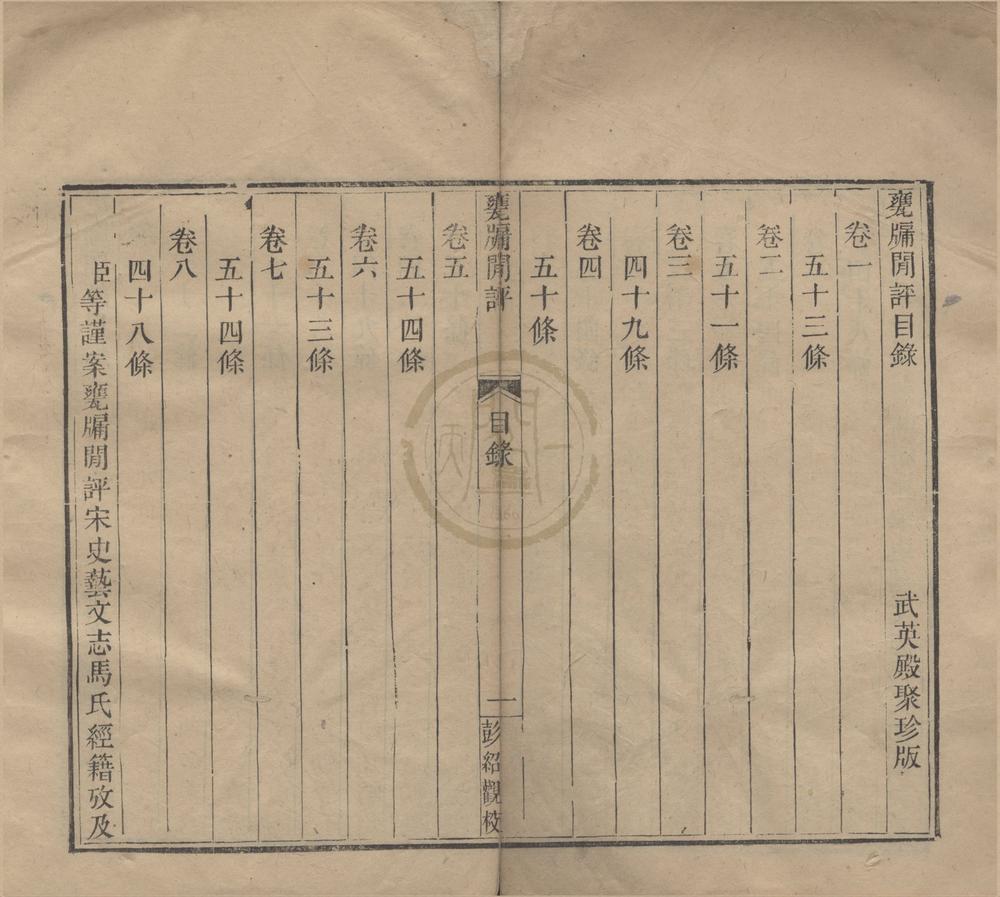 甕牖閒評目錄
武英殿聚珍版
卷一
五十三條
卷二
五十一條
卷三
四十九條
卷四
五十條
甕牖閒評
目錄
一
彭紹觀校
卷五
五十四條
卷六
五十三條
卷七
五十四條
卷八
四十八條
臣等謹案甕牖閒評宋史藝文志馬氏經籍攷及